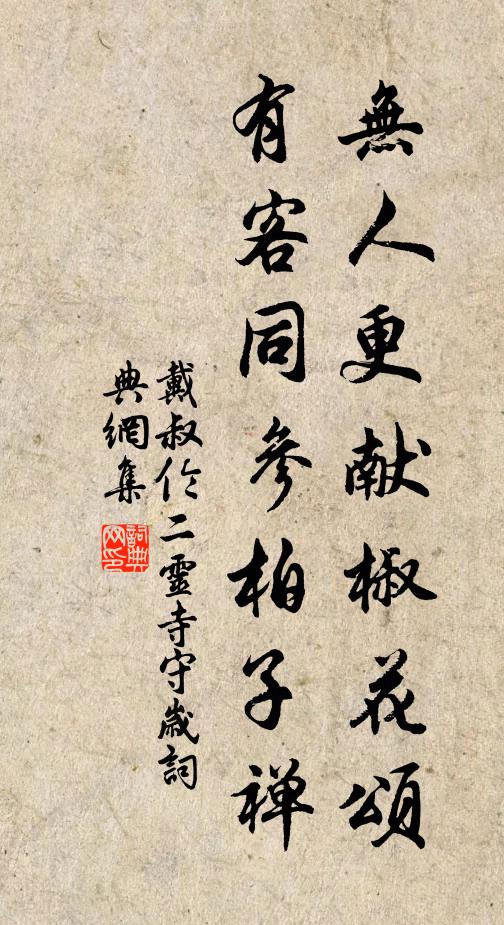 無人更献椒花頌
有客同參柏子禅
戴叔伦二靈寺守歲詞
典網集
詞典
网印